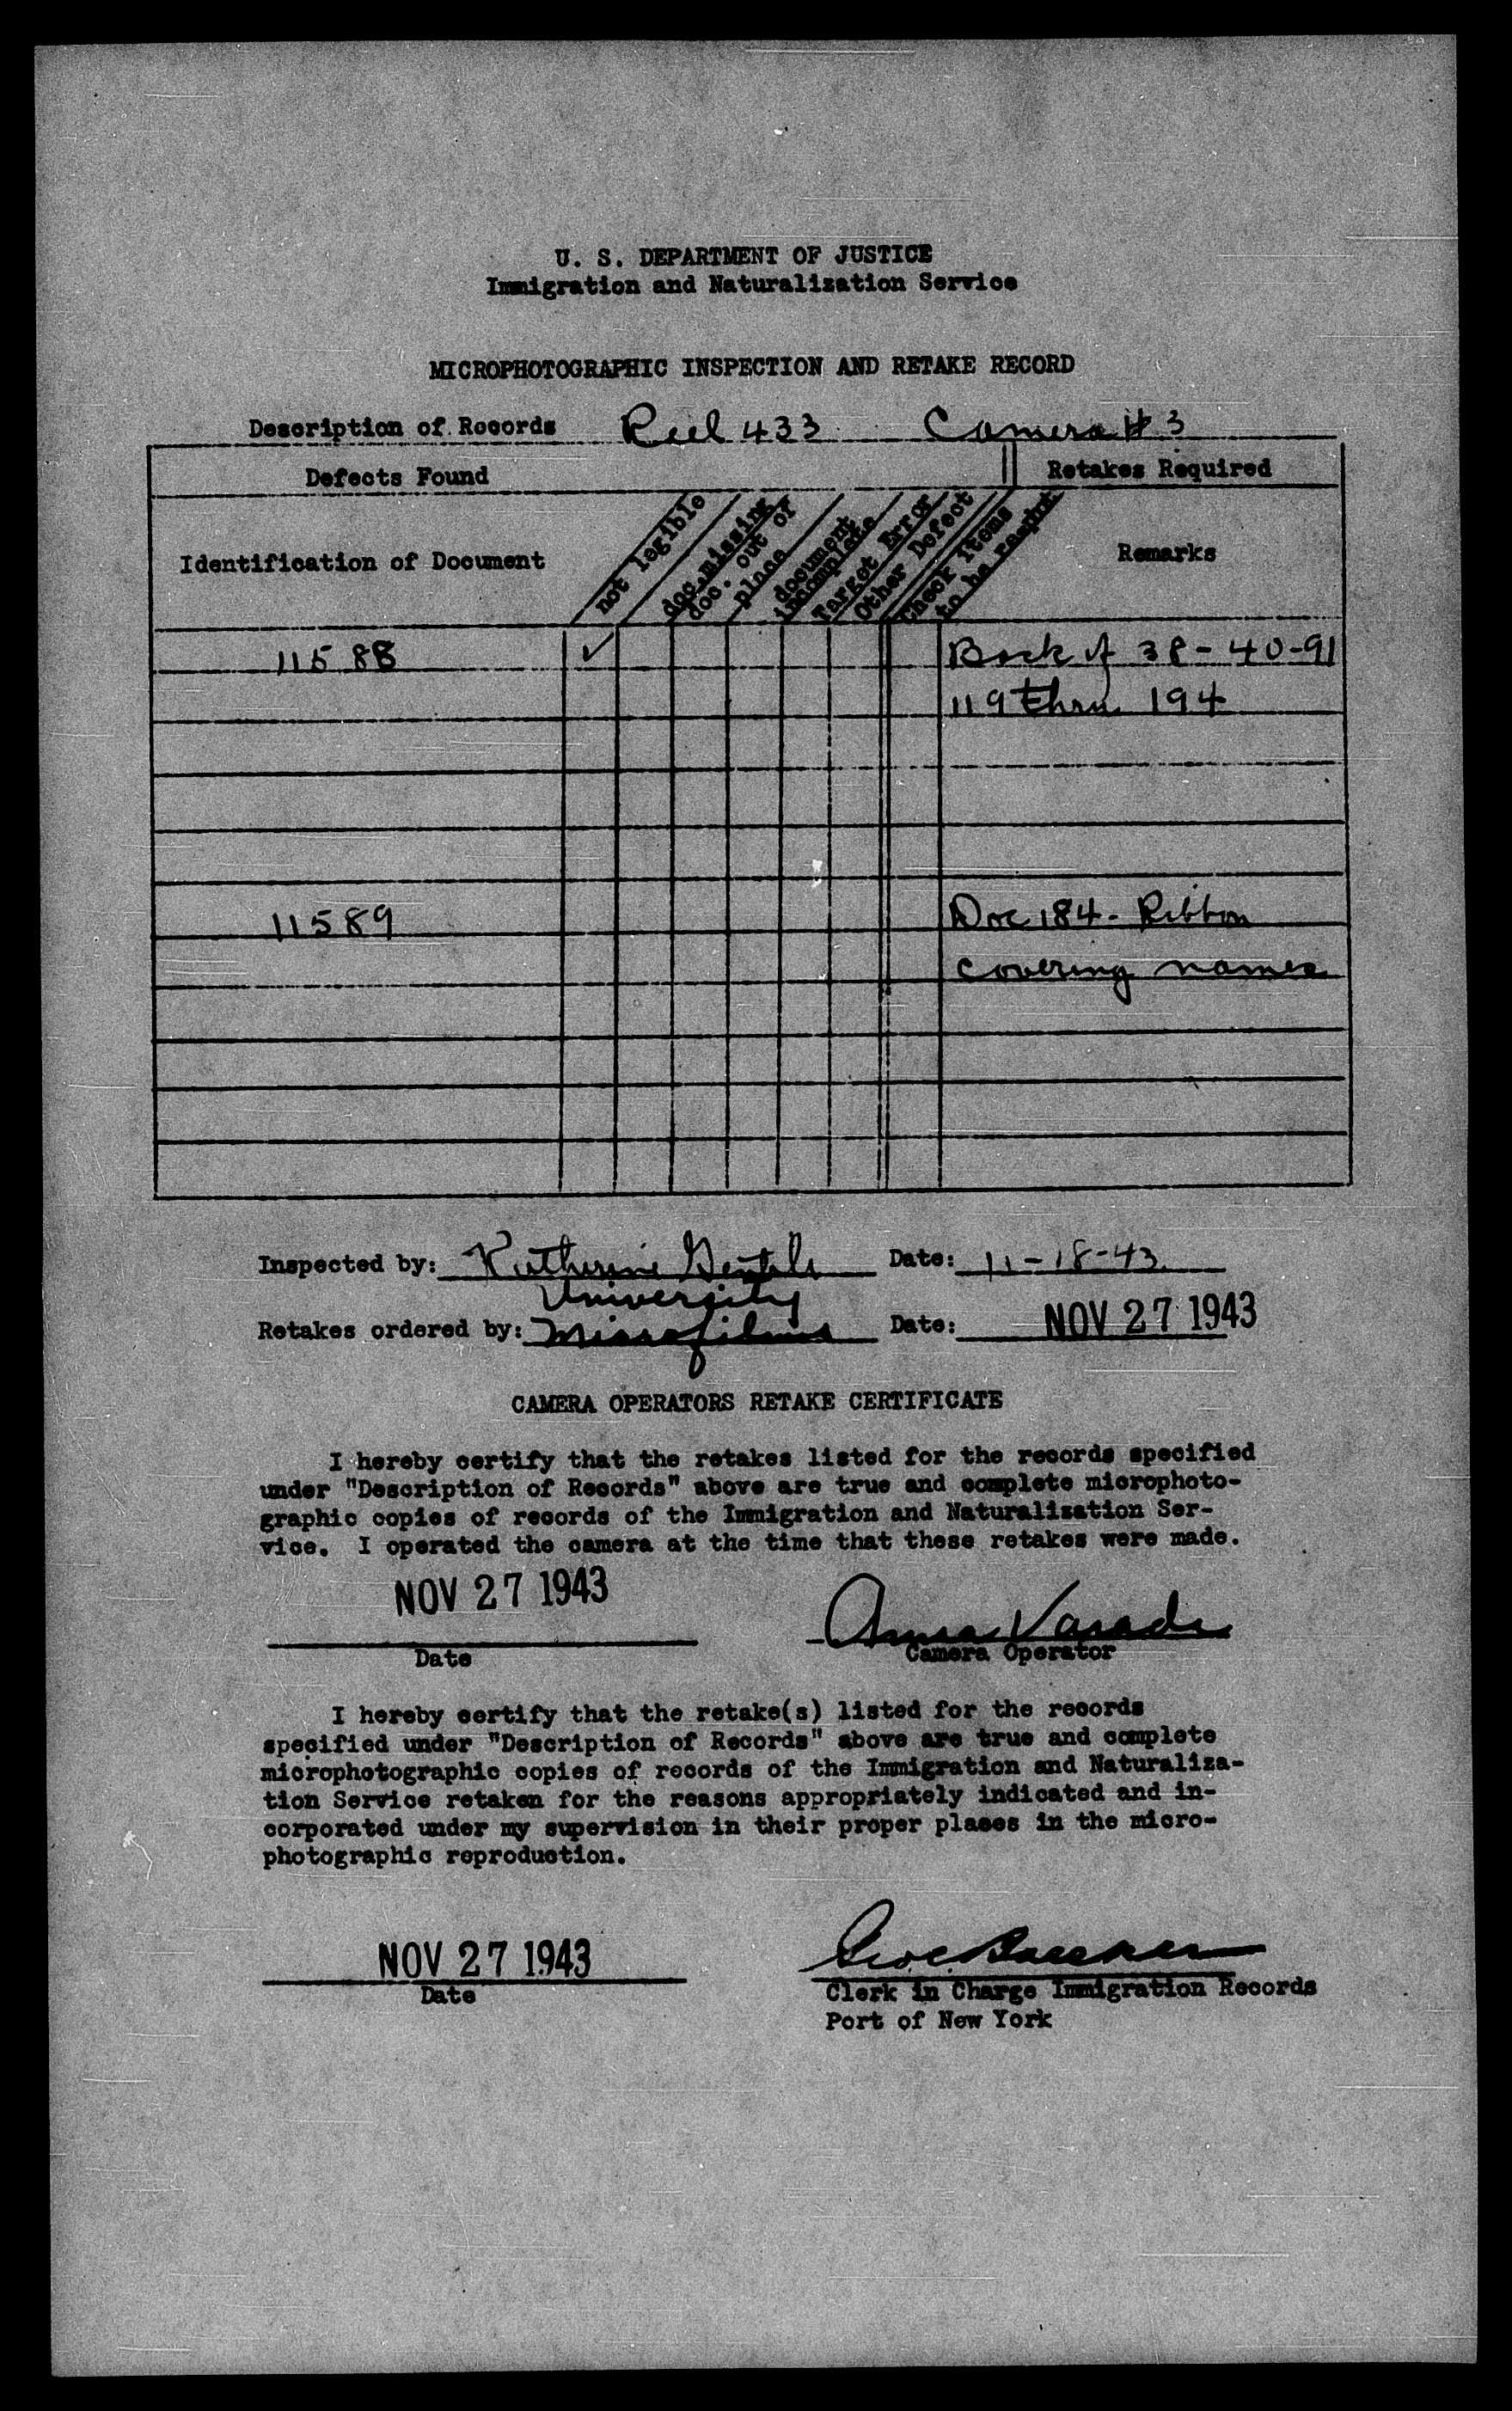 U. S. DEPARTMENT OF JUSTICE
Immigration and Naturalization Service
MICROPHOTOGRAPHIC INSPECTION AND RETAKE RECORD
Description of Records Reel 433 Camera # 3
Defects Found Retakes Required
Identification of Document
not legible
doc. missing
doc. out of
place
document
incomplete
Target Error
Other Defect
Check items
to be
Remarks
11588 ✓ Back of 38-40-91
119 thru 194
11589 Doc 184 - Ribbon
covering names
Inspected by: Katherine Date: 11-18-43
University
Retakes ordered by: Microfilms Date: NOV 27 1943
CAMERA OPERATORS RETAKE CERTIFICATE
I hereby certify that the retakes listed for the records specified
under "Description of Records" above are true and complete microphoto-
graphic copies of records of the Immigration and Naturalization Ser-
vice. I operated the camera at the time that these retakes were made.
NOV 27 1943
Anna
Date Camera Operator
I hereby certify that the retake(s) listed for the records
specified under "Description of Records" above are true and complete
microphotographic copies of records of the Immigration and Naturaliza-
tion Service retaken for the reasons appropriately indicated and in-
corporated under my supervision in their proper places in the micro-
photographic reproduction.
NOV 27 1943
Date Clerk in Charge Immigration Records
Port of New York